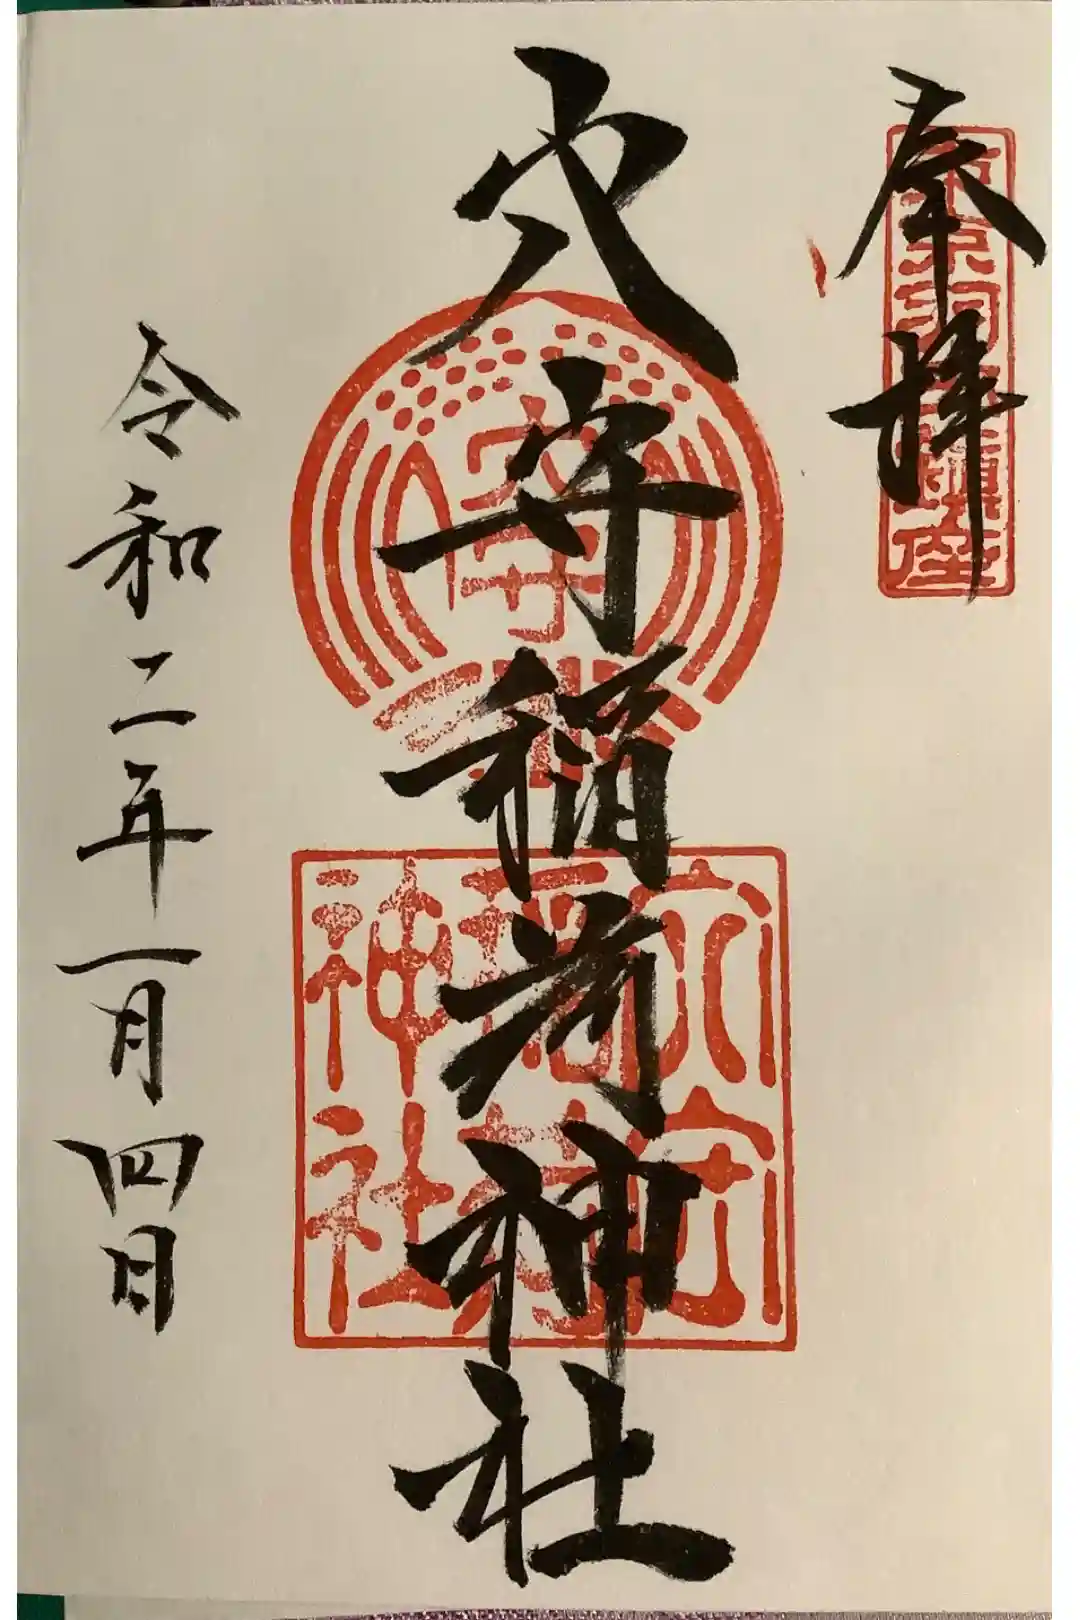 奉拝
東京羽田鎮座
穴守稲荷神社
穴守
穴守稲荷神社
令和二年一月四日